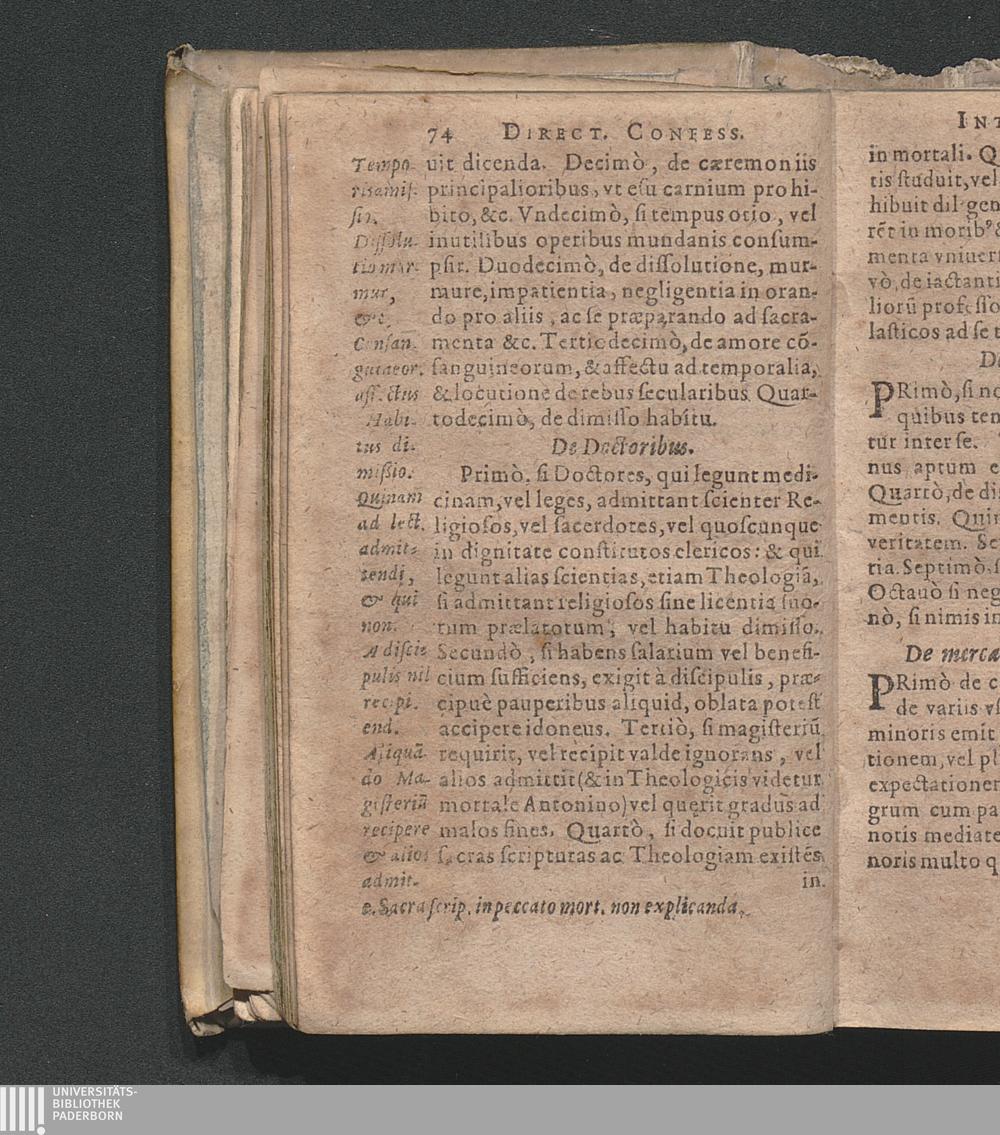 74 DIRECT. CONFESS.
uit dicenda. Decimò, de cæremoniis
principalioribus, vt esu carnium prohi-
bito, &c. Vndecimò, si tempus otio, vel
inutilibus operibus mundanis consum-
psit. Duodecimò, de dissolutione, mur-
mure, impatientia, negligentia in oran-
do pro aliis, ac se præparando ad sacra-
menta &c. Tertiodecimò, de amore cõ-
sanguineorum, & affectu ad temporalia,
& locutione de rebus secularibus. Quar-
todecimò, de dimisso habitu.
De Doctoribus.
Primò, si Doctores, qui legunt medi-
cinam, vel leges, admittant scienter Re-
ligiosos, vel sacerdotes, vel quoscunque
in dignitate constitutos clericos: & qui
legunt alias scientias, etiam Theologiã,
si admittant religiosos sine licentia suo-
rum prælatorum, vel habitu dimisso.
Secundò, si habens salarium vel benefi-
cium sufficiens, exigit à discipulis, præ-
cipuè pauperibus aliquid, oblata potest
accipere idoneus. Tertiò, si magisteriũ
requirit, vel recipit valde ignorans, vel
alios admittit (& in Theologicis videtur
mortale Antonino) vel quęrit gradus ad
malos fines. Quartò, si docuit publice
sacras scripturas ac Theologiam existẽs
in
Tempo
ris amis-
sio.
Dissolu-
tio mur-
mur,
&c.
Consan̄
guineor.
aff. ctus
Habi-
tus di-
missio.
Quinam
ad lect.
admit-
tendi,
& qui
non.
A disci-
pulis nil
recipi.
end.
Aliquã
do Ma-
gisteriũ
recipere
& alios
admit-
e. Sacra scrip. in peccato mort. non explicanda.
INT
in mortali. Q
tis studuit, vel
hibuit dil gen
rẽt in morib⁹ &
menta vniuer
vò, de iactanti
liorũ professo
lasticos ad se t
De
PRimò, si no
quibus ten
tur inter se.
nus aptum e
Quartò, de di
mentis. Quin
veritatem. Se
ria. Septimò, s
Octauò si neg
nò, si nimis in
De merca
PRimò de c
de variis vs
minoris emit
tionem, vel pl
expectationem
grum cum pa
notis mediate
noris multo q
UNIVERSITÄTS-
BIBLIOTHEK
PADERBORN